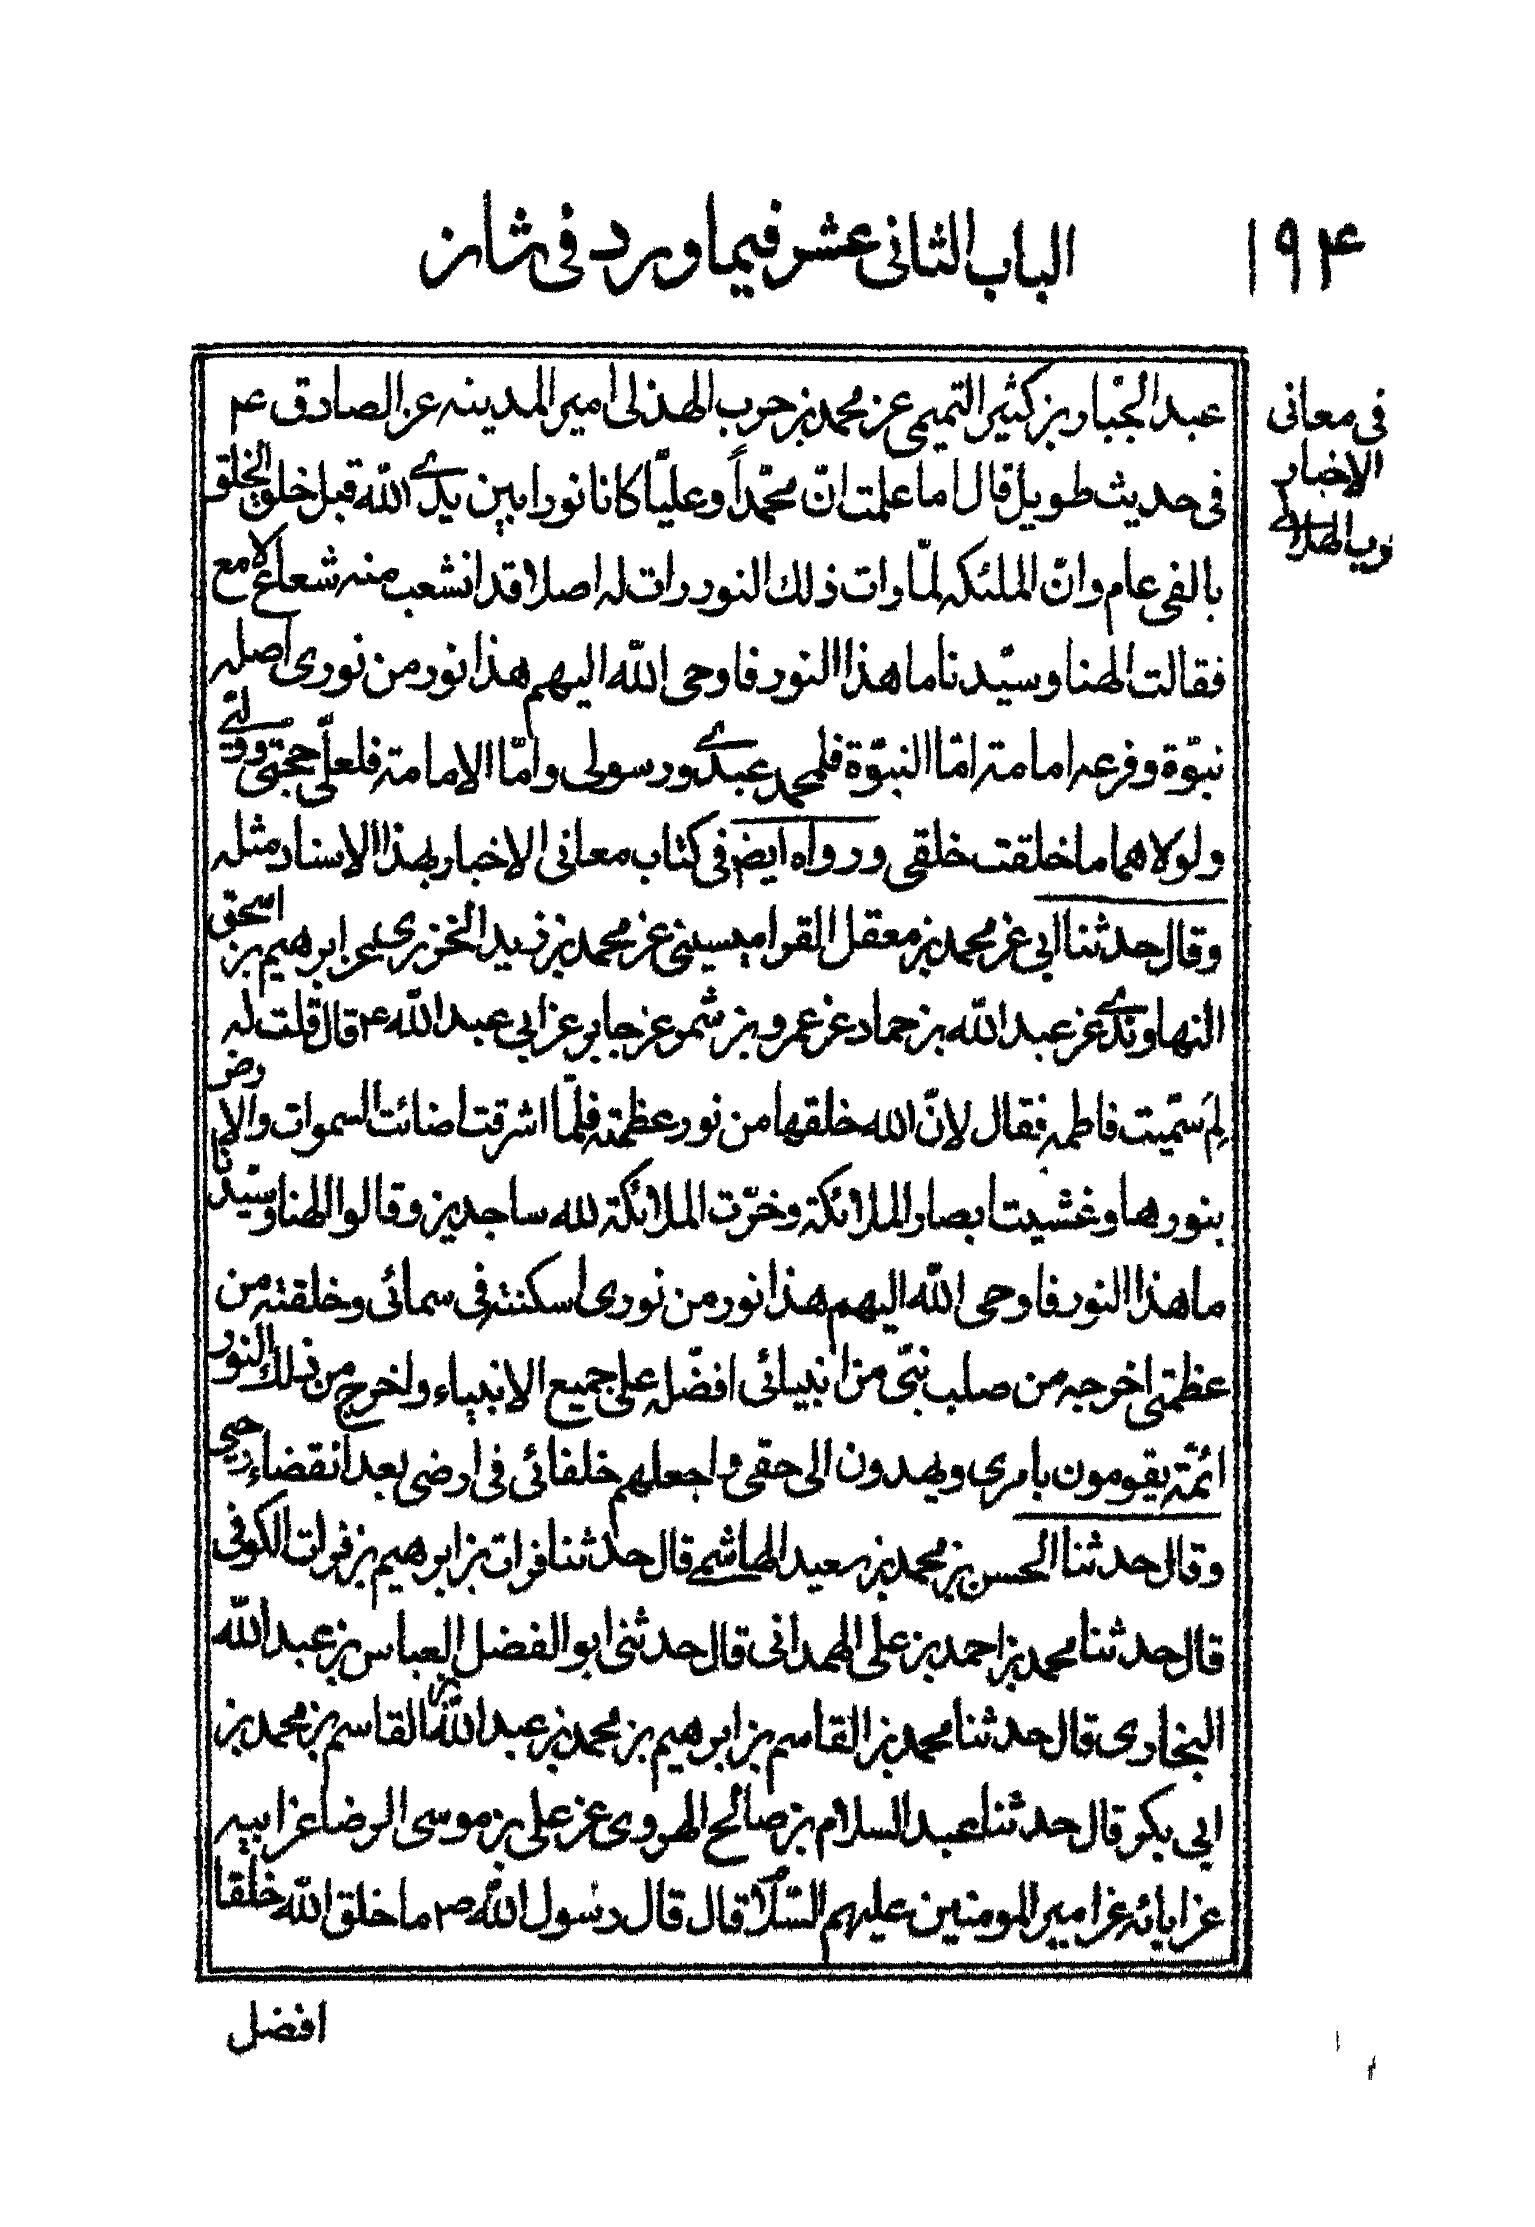 ١٩٤
الباب الثانى عشر فيما ورد فى شان
فى معانى
الاخبار
عبد الجبار بن كثير التميمى عن محمد بن حرب الهذلى امير المدينه عن الصادق ع
فى حديث طويل قال اما علمت انّ محمّداً وعليّا كانا نورا بين يدى الله قبل خلق الخلق
بالفى عام وانّ الملئكه لمّا رات ذلك النور رات له اصلا قد انشعب منه شعاع لامع
فقالت الهنا وسيّدنا ما هذا النور فاوحى الله اليهم هذا نور من نورى اصله
نبوّة وفرعه امامته امّا النبوّة فلمحمد عبدى ورسولى وامّا الامامته فلعلّى حجتى ووليّى
ولولاهما ما خلقت خلقى ورواه ايض فى كتاب معانى الاخبار بهذا الاسناد مثله
وقال حدثنا ابى عن محمد بن معقل القراميسينى عن محمد بن زيد الخزرى عن ابرهيم بن اسحق
النهاوندى عن عبد الله بن حماد عن عمرو بن شمر عن جابر عن ابى عبد الله ع قال قلت له
لِمَ سمّيت فاطمه فقال لانّ الله خلقها من نور عظمته فلمّا اشرقت اضائت السموات والارض
بنورها وغشيت ابصار الملائكة وخرّت الملائكة لله ساجدين وقالوا الهنا وسيّدنا
ما هذا النور فاوحى الله اليهم هذا نور من نورى اسكنته فى سمائى وخلقته من
عظمتى اخرجه من صلب نبّى من انبيائى افضّله على جميع الانبياء واخرج من ذلك النور
ائمّة يقومون بامرى ويهدون الى حقى واجعلهم خلفائى فى ارضى بعد انقضاء وحيى
وقال حدثنا الحسن بن محمد بن سعيد الهاشمى قال حدثنا فرات بن ابرهيم بن فرات الكوفى
قال حدثنا محمد بن احمد بن على الهمدانى قال حدثنى ابو الفضل العباس بن عبد الله
البخارى قال حدثنا محمد بن القاسم بن ابرهيم بن محمد بن عبد الله بن القاسم بن محمد بن
ابى بكر قال حدثنا عبد السلام بن صالح الهروى عن على بن موسى الرضا عن ابيه
عن ابائه عن امير المومنين عليهم السّلام قال قال رسول الله ص ما خلق الله خلقا
افضل